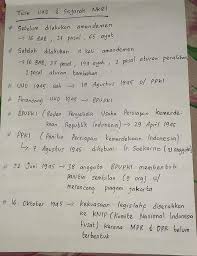 Tes UUD & Sejarah NKRI
* Sebelum dilakukan amandemen
→ 16 BAB, 37 pasal, 65 ayat
* Setelah dilakukan 4 kali amandemen
→ 16 BAB, 37 pasal, 194 ayat, 3 pasal aturan peralihan,
2 pasal aturan tambahan
* UUD 1945 sah → 18 Agustus 1945 o/ PPKI
* Perancang UUD 1945 → BPUPKI
* BPUPKI (Badan Penyelidik Usaha Persiapan Kemerde-
kaan Republik Indonesia) → 29 April 1945
* PPKI (Panitia Persiapan Kemerdekaan Indonesia)
↳ 7 Agustus 1945 diketuai Ir. Soekarno (21 anggota)
* 22 Juni 1945 → 38 anggota BPUPKI membentuk
panitia sembilan (9 orang) u/
merancang piagam jakarta
* 16 Oktober 1945 → kekuasaan legislatif diserahkan
ke KNIP (Komite Nasional Indonesia
Pusat) karena MPR & DPR belum
terbentuk